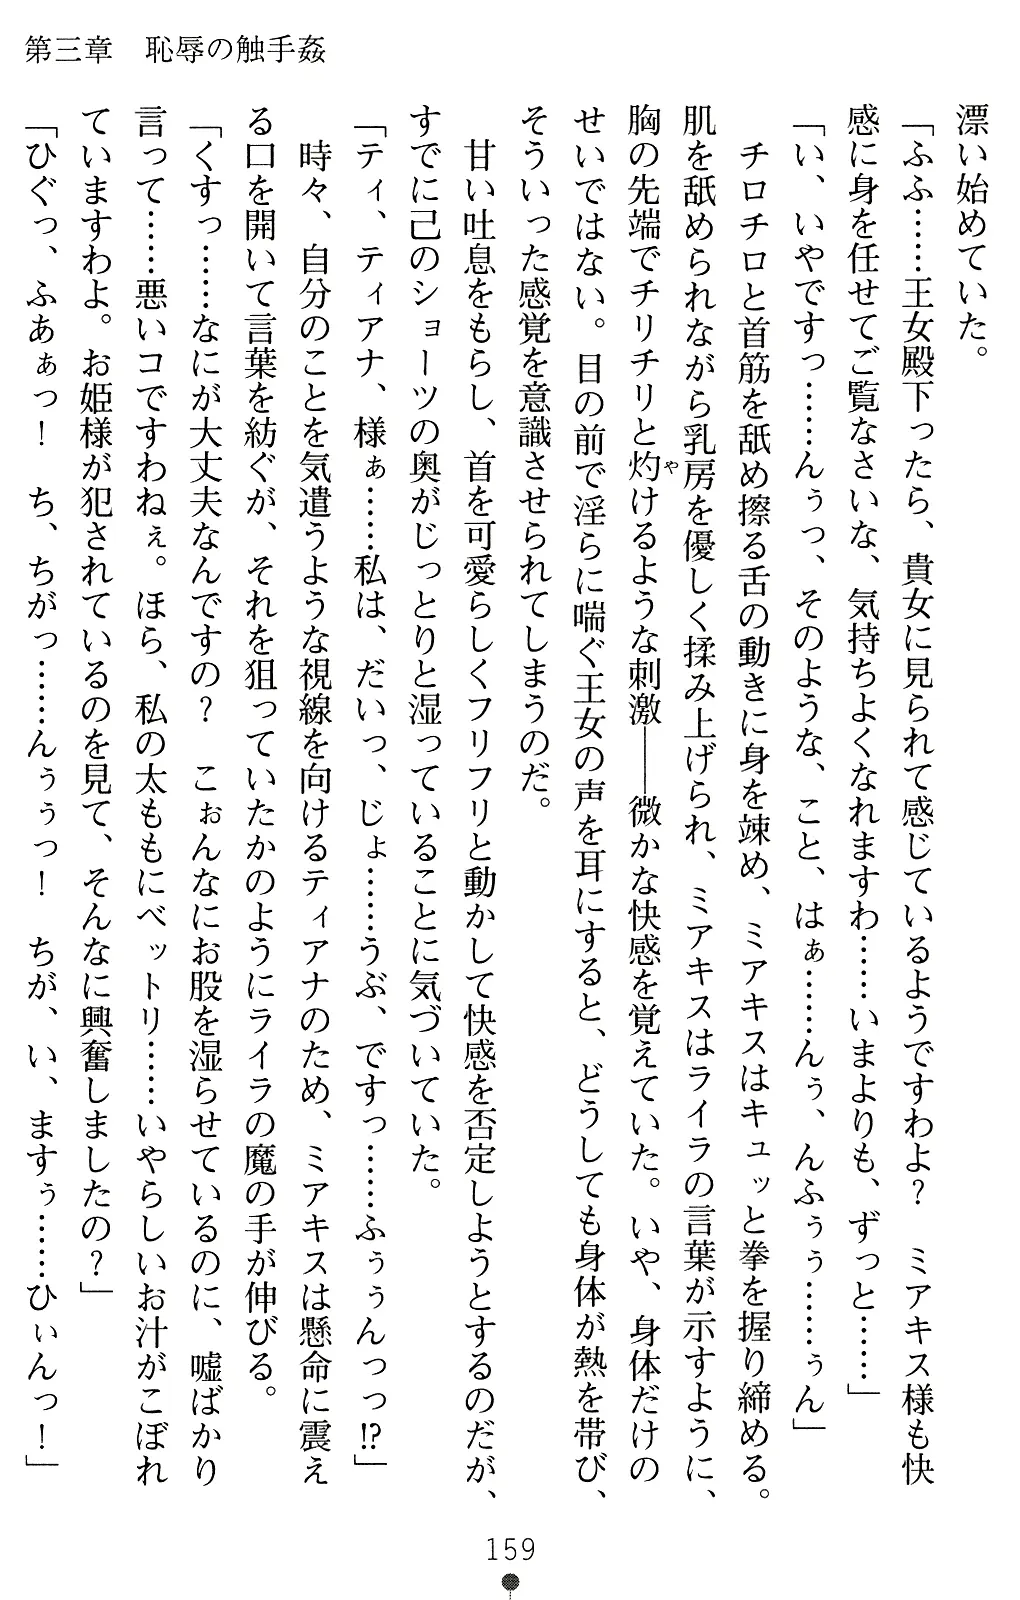 第三章　恥辱の触手姦
漂い始めていた。
「ふふ……王女殿下ったら、貴女に見られて感じているようですわよ？　ミアキス様も快
感に身を任せてご覧なさいな、気持ちよくなれますわ……いまよりも、ずっと……」
「い、いやですっ……んぅっ、そのような、こと、はぁ……んぅ、んふぅぅ……ぅん」
　チロチロと首筋を舐め擦る舌の動きに身を竦め、ミアキスはキュッと拳を握り締める。
肌を舐められながら乳房を優しく揉み上げられ、ミアキスはライラの言葉が示すように、
胸の先端でチリチリと灼けるような刺激――微かな快感を覚えていた。いや、身体だけの
せいではない。目の前で淫らに喘ぐ王女の声を耳にすると、どうしても身体が熱を帯び、
そういった感覚を意識させられてしまうのだ。
　甘い吐息をもらし、首を可愛らしくフリフリと動かして快感を否定しようとするのだが、
すでに己のショーツの奥がじっとりと湿っていることに気づいていた。
「ティ、ティアナ、様ぁ……私は、だいっ、じょ……うぶ、ですっ……ふぅぅんっっ!?」
　時々、自分のことを気遣うような視線を向けるティアナのため、ミアキスは懸命に震え
る口を開いて言葉を紡ぐが、それを狙っていたかのようにライラの魔の手が伸びる。
「くすっ……なにが大丈夫なんですの？　こぉんなにお股を湿らせているのに、嘘ばかり
言って……悪いコですわねぇ。ほら、私の太ももにベットリ……いやらしいお汁がこぼれ
ていますわよ。お姫様が犯されているのを見て、そんなに興奮しましたの？」
「ひぐっ、ふあぁっ！　ち、ちがっ……んぅぅっ！　ちが、い、ますぅ……ひぃんっ！」
159